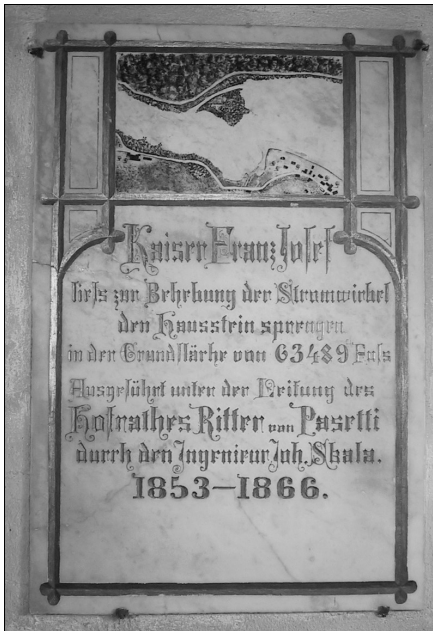 Kaiser Franz Josef
liess zur Behebung der Stromwirbel
den Hausstein sprengen
in der Grundfläche von 63489 Fuss
Ausgeführt unter der Leitung des
Hofrathes Ritter von Pasetti
durch den Ingenieur Joh. Skala.
1853–1866.